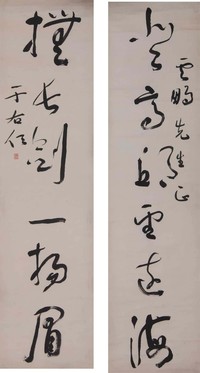 雲鵬先生正
登高丘望遠海
撫長劍一揚眉
于右任